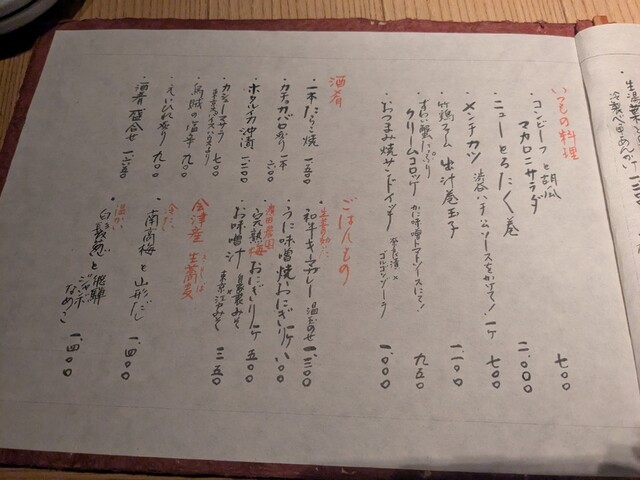 生湯葉
冷製べっ甲あんかけ
いつもの料理
・コンビーフと胡瓜
マカロニサラダ 七〇〇
・ニューとろたく巻 二、〇〇〇
・メンチカツ 渋谷ハチ公ソースをかけて!一ヶ 七〇〇
・竹鶏たまご 出汁巻玉子 一、一〇〇
・ずわい蟹たっぷり
クリームコロッケ かに味噌トマトソースにて! 九五〇
・おつまみ焼サンドイッチ ゴルゴンゾーラ 一、〇〇〇
酒肴
・一本たらこ焼 一、五〇〇
・カチョカバロ炙り 一本 六〇〇
・ホタルイカ沖漬 一、三〇〇
・カシューナッツ 七〇〇
・烏賊の塩辛 九〇〇
・えいひれ炙り 九〇〇
・酒肴盛合せ 一、六五〇
ごはんもの
・和牛キーマカレー 温玉のせ 一、三〇〇
・うに味噌焼おにぎり 一ヶ 八〇〇
・完熟梅おにぎり 一ヶ 五〇〇
・お味噌汁 三五〇
会津産 生蕎麦
冷たい
・南高梅と山形だし 一、四〇〇
温かい
・白長葱と飛騨ジャンボなめこ 一、四〇〇